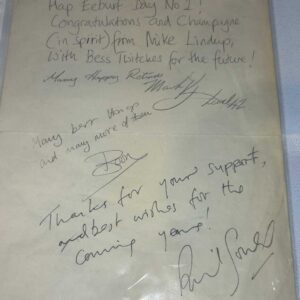 Hap Eeburt Day No 1!
Congratulations and Champagne
(in spirit) from Mike Lindup,
With Bess Twitches for the future!
Many Happy Returns
Mark
Many best things
and many more of them
Boon
Thanks for your support,
and best wishes for the
coming years!
Phil Gould